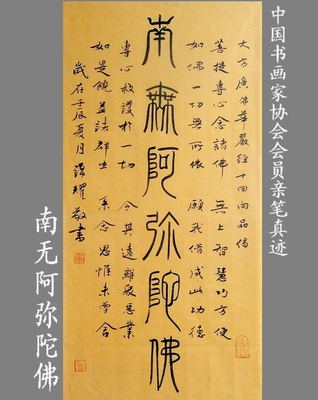 中国书画家协会会员亲笔真迹
大方廣佛華嚴經十回向品偈
菩提專心念諸佛 無上智慧巧方便
如佛一切無所依 願我修成此功德
南無阿弥陀佛
專心救護於一切 令其遠離衆惡業
如是饒益諸群生 系念思惟未曾舍
歲在壬辰夏月 耀敬書
南无阿弥陀佛